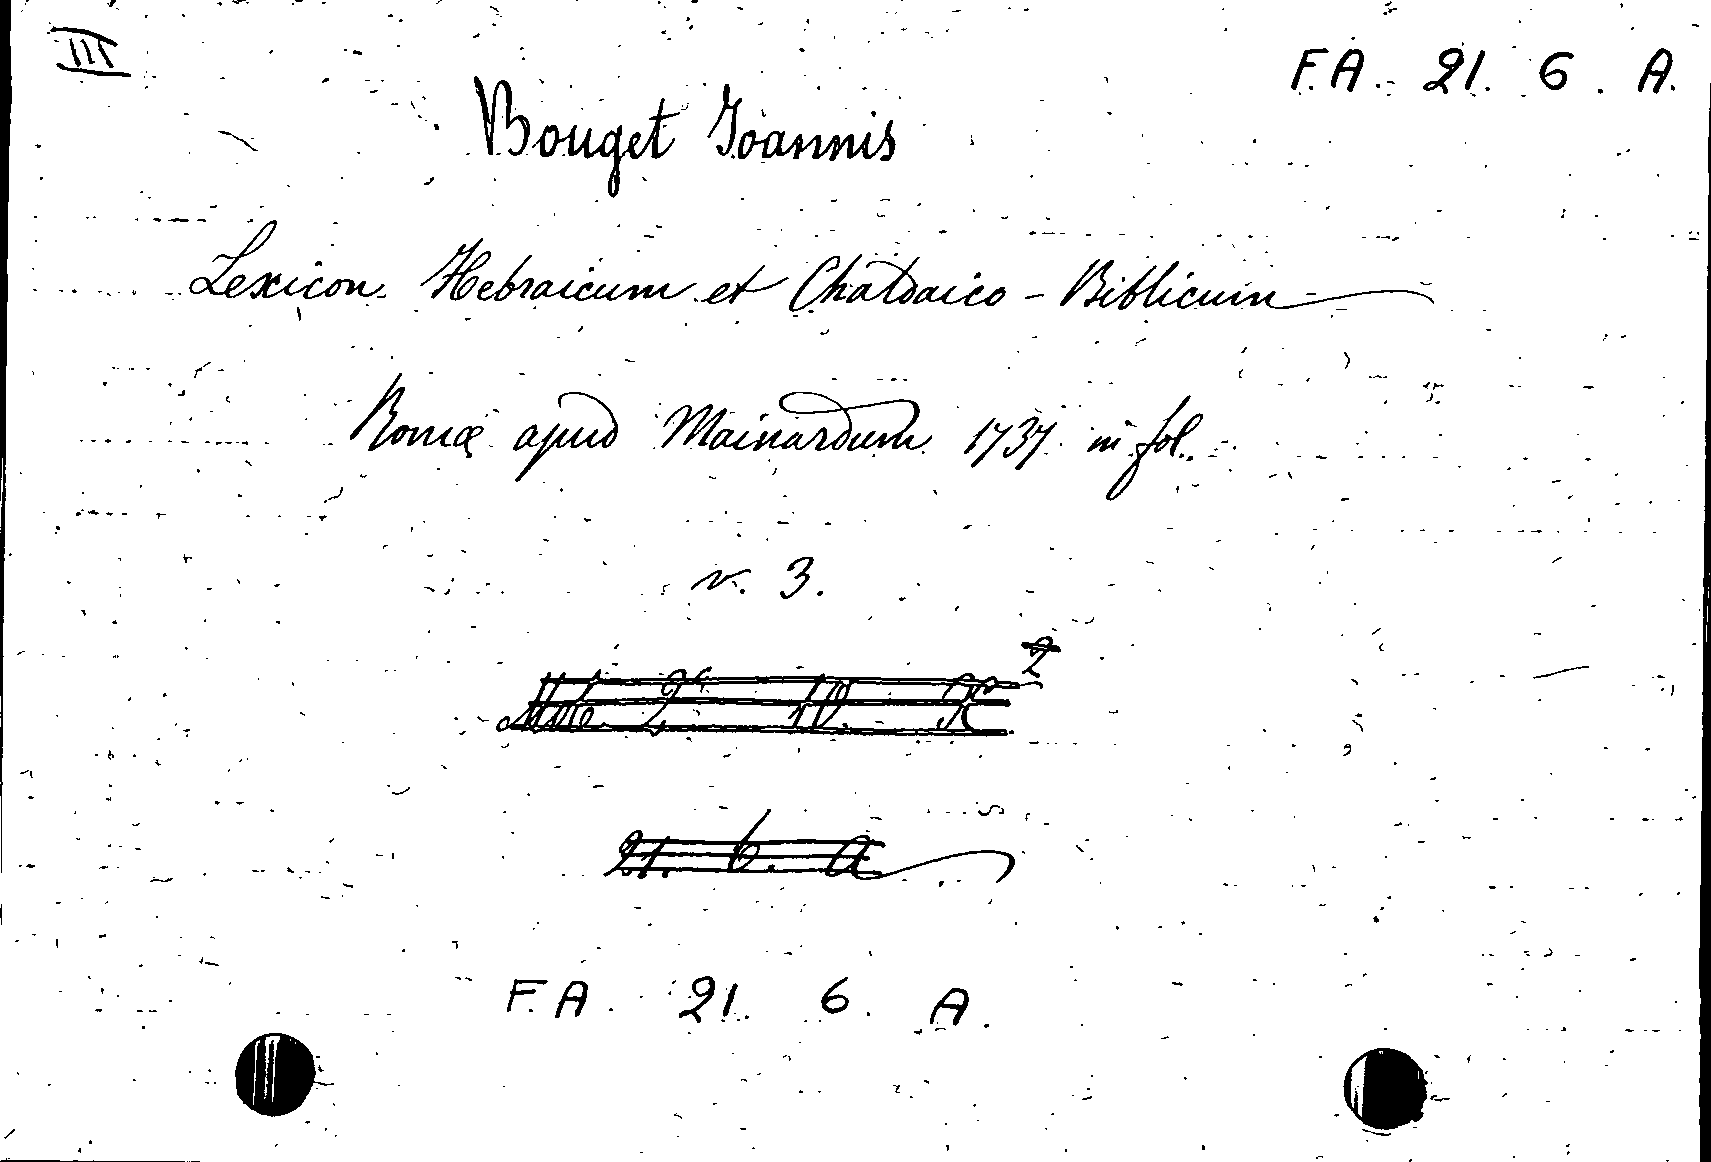 III
F.A. 21. 6. A.
Bouget Joannis
Lexicon Hebraicum et Chaldaico-Biblicum
Romæ apud Mainardum 1737 in fol.
v. 3.
2
21. 6. A
F.A. 21. 6. A.